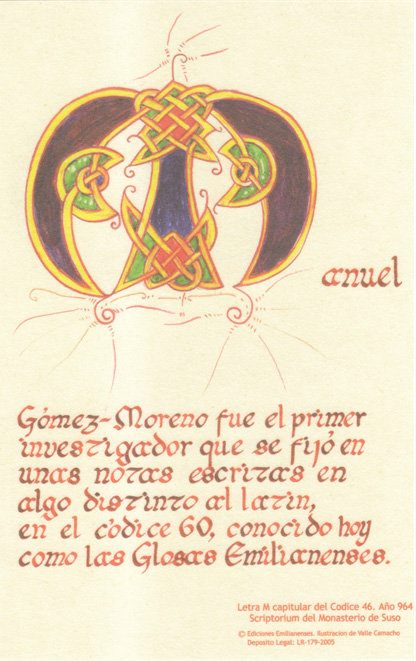 Manuel
Gómez-Moreno fue el primer
investigador que se fijó en
unas notas escritas en
algo distinto al latín,
en el códice 60, conocido hoy
como las Glosas Emilianenses.
Letra M capitular del Codice 46. Año 964
Scriptorium del Monasterio de Suso
© Ediciones Emilianenses. Ilustracion de Valle Camacho
Deposito Legal: LR-179-2005